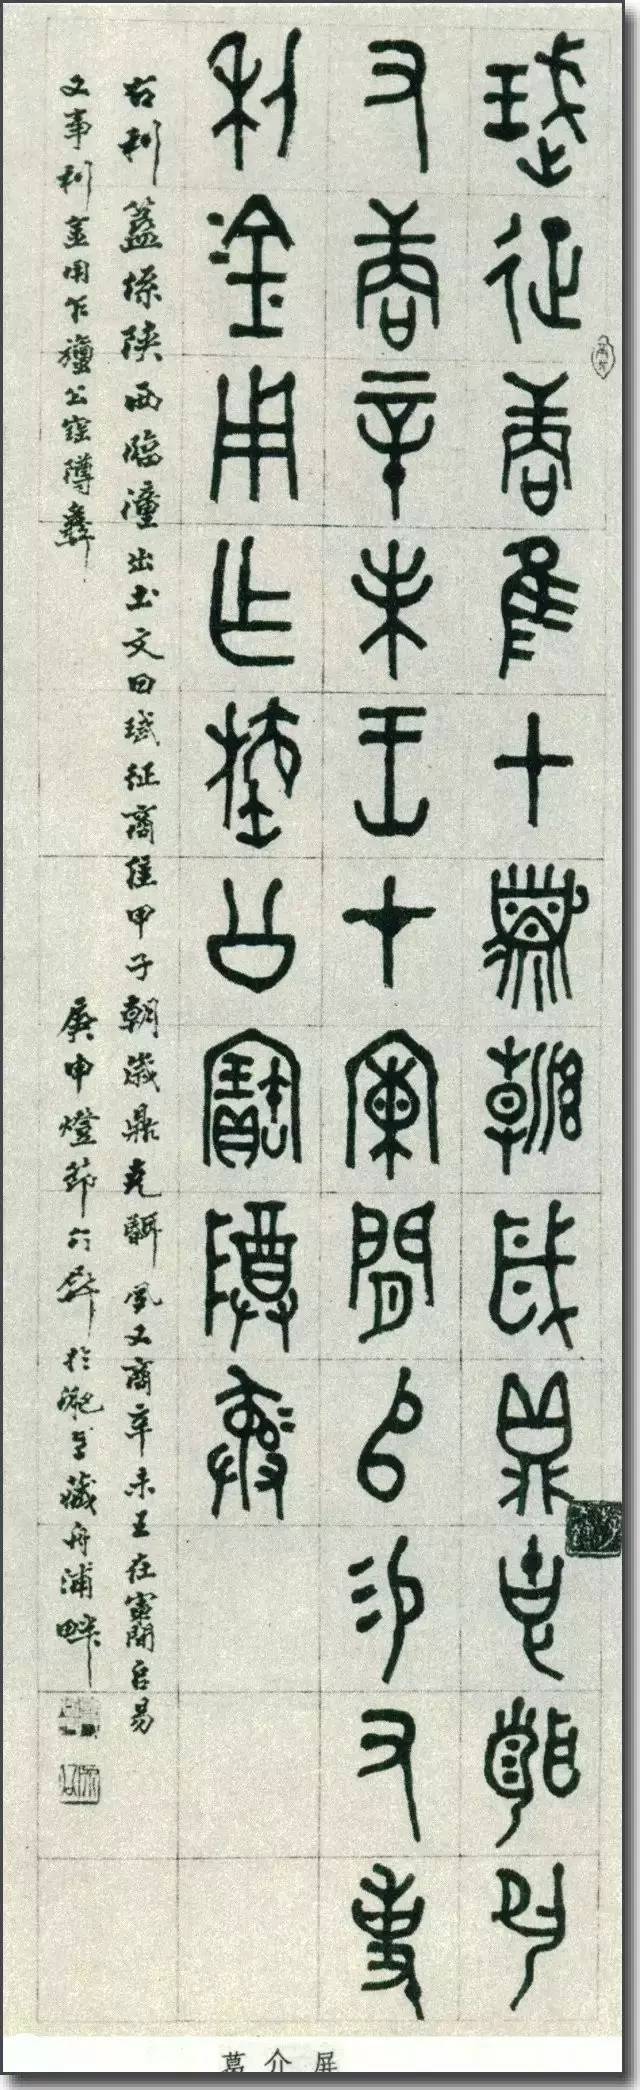 珷征商隹甲子朝歲鼎克聞夙
又商辛未王才間𠂤易又事
利金用乍旜公寶䵼彝
右利簋係陝西臨潼出土文曰珷征商隹甲子朝歲鼎克聞夙又商辛未王在閒𠂤易
又事利金用乍旜公寶隣彝
庚申燈節於藏舟浦畔
葛介屏